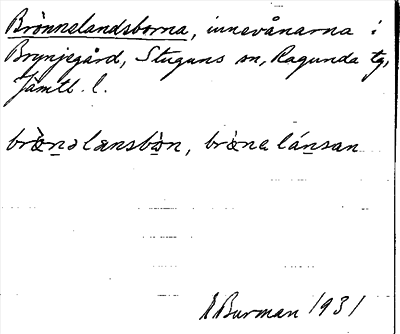 Brönnelandsborna, innevånarna i
Brynjegård, Stuguns sn, Ragunda tg,
Jämtl. l.
bròn̲ə lænsbòn, brònelán̲san
E Burman 1931